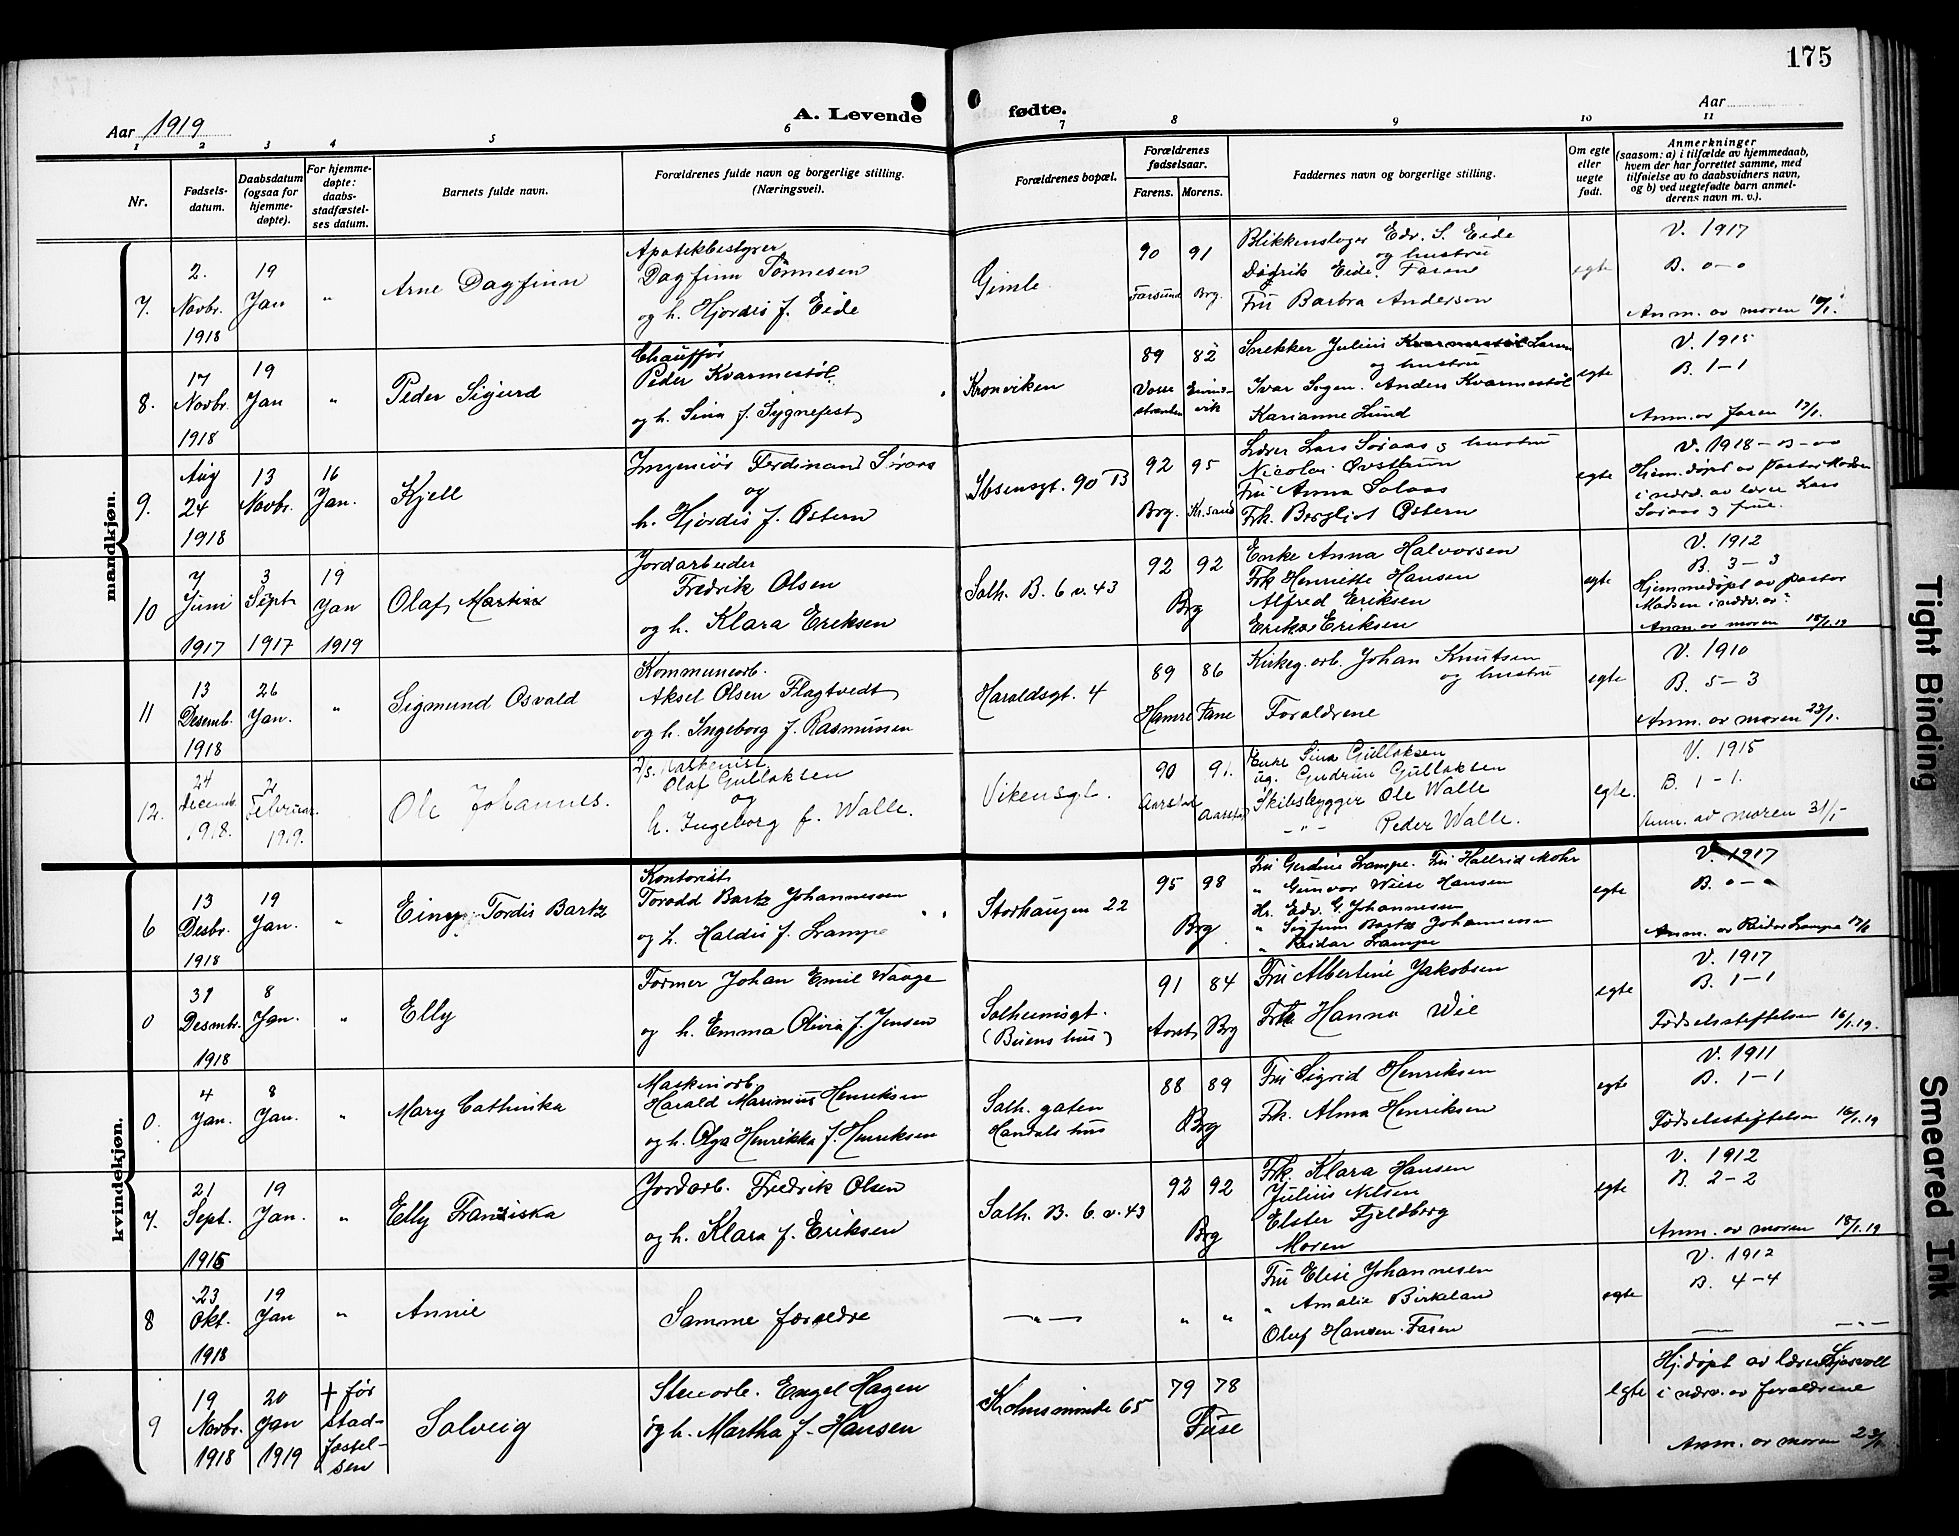 175
Aar 1919
A. Levende
fødte.
Aar
1 2 3 4 5 6 7 8 9 10 11
Nr.
Fødsels-
datum.
Daabsdatum
(ogsaa for
hjemme-
døpte).
For hjemme-
døpte:
daabs-
stadfæstel-
ses datum.
Barnets fulde navn.
Forældrenes fulde navn og borgerlige stilling.
(Næringsvei).
Forældrenes bopæl.
Forældrenes
fødselsaar.
Farens. Morens.
Faddernes navn og borgerlige stilling.
Om egte
eller
uegte
født.
Anmerkninger
(saasom: a) i tilfælde av hjemmedaab,
hvem der har forrettet samme, med
tilføielse av to daabsvidners navn,
og b) ved uegtefødte barn anmel-
derens navn m. v.).
mandkjøn.
7.
2.
Novbr.
1918
19
Jan
"
Arne Dagfinn
Apotekbestyrer
Dagfinn Tönnesen
og h. Hjördis f. Eide
Gimle
90 91
Farsund Brg.
Blikkenslager Edv. S. Eide
og hustru
Eide. Faren
Fru Barbra Anderson
egte
V. 1917
B. 0-0
Anm. av moren
8.
17
Novbr.
1918
19
Jan
"
Peder Sigurd
Chauffør
Peder Kvarmestöl
og h. Sina f. Sygnefest
Kronviken
89 82
Snekker Julius Kvarmestöl Larsen
og hustru
Ivar Sogen. Anders Kvarmestöl
Karianne Lund
egte
V. 1915
B. 1-1
Anm. av faren 17/1.
9.
Aug
24
1918
13
Novbr.
16
Jan.
Kjell
Ingeniör Ferdinand Söraas
og
h. Hjördis f. Östern
Ibsensgt. 90 B
92 95
Brg. Kr.sand
Lærer Lars Söraas og hustru
Nicolai
Fru Anna Solaas
Frk. Bergliot Östern
egte
V. 1918-B-00
Hjem.döpt av pastor Madsen
i nærv. av lærer Lars
Söraas og frue.
10
7
Juni
1917
3
Sept
1917
19
Jan
1919
Olaf Martin
Jordarbeider
Fredrik Olsen
og h. Klara Eriksen
Solh. B. 6 v. 43
92 92
Brg
Enke Anna Halvorsen
Frk Henriette Hansen
Alfred Eriksen
Erika Eriksen
egte
V. 1912
B. 3-3
Hjemmedöpt av pastor
Madsen i nærv. av
Anm. av moren 18/1.19
11
13
Desemb.
1918
26
Jan.
"
Sigmund Osvald
Kommunearb.
Aksel Olsen Flagtvedt
og h. Ingeborg f. Rasmussen
Haraldsgt. 4
89 86
Hamre Fane
Kirkeg. arb. Johan Knutsen
og hustru
Foraldrene
egte
V. 1910
B. 5-3
Anm. av moren 23/1.
12.
24
Decemb.
1918.
2
Februar
1919.
Ole Johannes.
Olaf Gullaksen
og
h. Ingeborg f. Walle.
Vikensgt.
90 91.
Aarstad Aarstad
Enke Sina Gullaksen
ug. Gudrun Gullaksen
Skibsbygger Ole Walle
-"- Peder Walle.
egte.
V. 1915
B. 1-1.
Anm. av moren 31/1
kvindekjøn.
6
13
Desbr.
1918
19
Jan.
"
Tordis Bartz
Kontorist
Torodd Bartz Johannessen
og h. Haldis f. Lampe
Storhaugen 22
95 98
Brg
Fru Gerdine Lampe. Fru Hallrid Mohr
" Gunvor Wiese Hansen
Hr. Edv. G. Johannesen
" Sigfinn Bartz Johannessen
" Reidar Lampe
egte
V. 1917
B. 0-0
Anm. av Reidar Lampe
0
31
Desmbr.
1918
8
Jan.
"
Elly
Former Johan Emil Waage
og h. Emma Olivia f. Jensen
Solheimsgt.
(Buens hus)
91 84
Brg
Fru Albertine Jakobsen
Frk Hanna Wie
egte
V. 1917
B. 1-1
Fødselsstiftelsen 16/1.19.
0.
4
Jan.
8
Jan.
"
Mary Cathinka
Maskinarb.
Harald Marinius Henriksen
og h. Olga Henrikka f. Henriksen
Solh. gaten
Handals hus
88 89
Brg
Fru Sigrid Henriksen
Frk. Alma Henriksen
egte
V. 1911
B. 1-1
Fødselsstiftelsen 16/1.19
7.
21
Sept.
1915
19
Jan.
"
Elly Franziska
Jordarb. Fredrik Olsen
og h. Klara f. Eriksen
Solh. B. 6. v. 43
92 92
Brg
Frk. Klara Hansen
Julius Nilsen
Elster Fjeldborg
Moren
egte
V. 1912
B. 2-2
Anm. av moren 18/1.19
8
23
Okt.
1918
19
Jan
"
Annie
Samme foreldre
—"—
" "
Fru Elise Johannesen
" Amalie Birkeland
Oluf Hansen. Faren
egte
V. 1912
B. 4-4
9
19
Novbr.
1918
20
Jan
1919
+ før
stad-
fæstel-
sen
Solveig
Stenarb. Engel Hagen
og h. Martha f. Hansen
65
79 78
Fuse
egte
Hj. døpt av lærer
i nærv. av foraldrene
Anm. av moren 23/1
Tight Binding
Smeared Ink